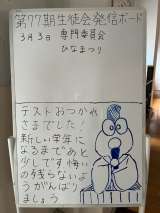 第77期生徒会発信ボード
3月3日 専門委員会
ひなまつり
テストおつかれ
さまでした!
新しい学年に
なるまであと
少しです悔い
の残らないよ
うがんばり
ましょう